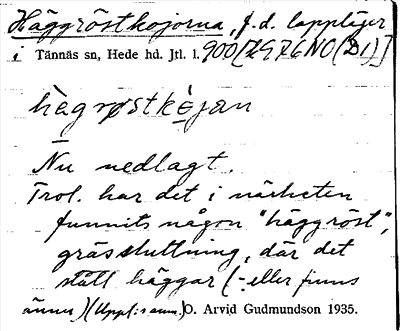 Häggröstkojorna, f.d. lappläger
i Tännäs sn, Hede hd. Jtl. l. 900 [ZG76NO(D1)]
hègrøstkèjan
Nu nedlagt.
Trol. har det i närheten
funnits någon "häggröst",
grässluttning, där det
stått häggar (- eller finns
ännu) (Uppl:s anm.) O. Arvid Gudmundson 1935.